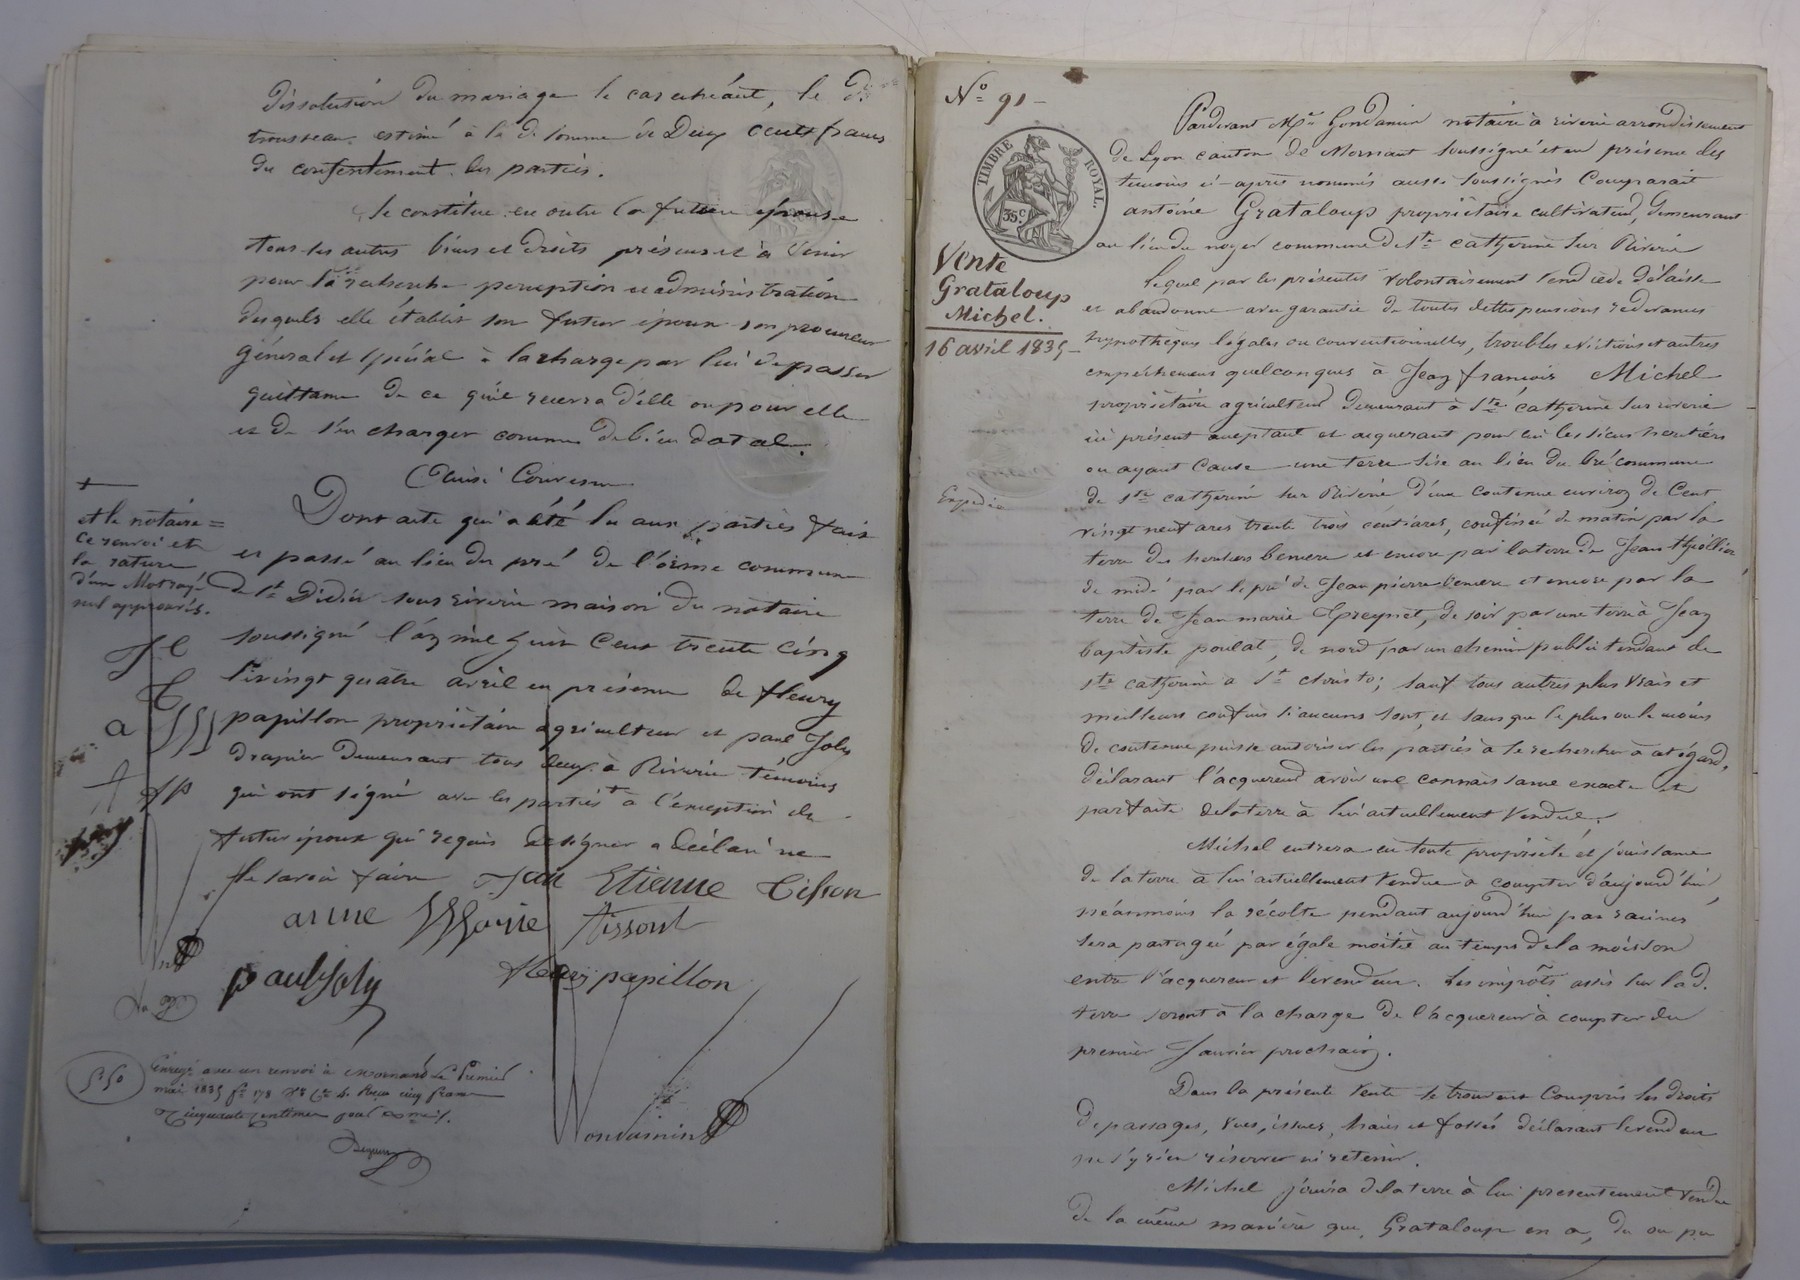 dissolution du mariage le cas echéant, le dt
trousseau estimé à la de somme de Deux cents francs
du consentement des parties.
Se constitue en outre la future épouse
tous les autres biens et droits présens et à venir
pour la recherche perception et administration
desquels elle établit son futur époux son procureur
général et spécial à la charge par lui de passer
quittance de ce qu'il recevra d'elle ou pour elle
et de s'en charger comme de bien dotal.
Ainsi Convenu
Dont acte qui a été lu aux parties fait
et passé au lieu du pré de l'orme commune
de St Didier sous riverie maison du notaire
soussigné l'an mil huit Cent trente cinq
le vingt quatre avril en présence de fleury
papillon propriétaire agriculteur et paul Joly
drapier demeurant tous deux à Riverie témoins
qui ont signé avec les parties + à l'exception du
futur époux qui requis de signer a déclaré ne
le savoir faire Jean Etienne Tisson
anne Tissont
paul Joly fleury papillon
+
et le notaire =
ce renvoi et
la rature
d'un Mot rayé
nul approuvés.
J E
T
a
A fp
5 50
Enregé avec un renvoi à Mornant Le Premier
mai 1835 fo 178 Ro Ce 4. Reçu cinq francs
Cinquante Centimes pour Dixmes.
Gondamin
No 91
TIMBRE ROYAL.
35c
Vente
Grataloup
Michel.
16 avril 1835
Expédié
Pardevant Me Gondamin notaire à riverie arrondissement
de Lyon canton de Mornant soussigné et en présence des
temoins ci-après nommés aussi soussignés Comparait
antoine Grataloup propriétaire cultivateur, demeurant
au lieu du noyer commune de Ste catherine sur Riverie
Lequel par les présentes volontairement vend cède délaisse
et abandonne avec garantie de toutes dettes pensions redevances
hypothèques légales ou conventionnelles, troubles evictions et autres
empêchemens quelconques à Jean françois Michel
propriétaire agriculteur demeurant à Ste catherine sur riverie
ici présent acceptant et acquerant pour lui les siens heritiers
ou ayant cause une terre sise au lieu du bré commune
de Ste catherine sur Riverie d'une contenue environ de Cent
vingt neuf ares trente trois centiares, confinée de matin par la
terre des heritiers bemere et encore par la terre de Jean thollier
de midi par le pré de Jean pierre bemere et encore par la
terre de Jean marie Greynet, de soir par une terre à Jean
baptiste poulat, de nord par un chemin public tendant de
Ste catherine à St christo; sauf tous autres plus vrais et
meilleurs confins si aucuns sont, et sans que le plus ou le moins
de contenue puisse autoriser les parties à se rechercher à cet égard,
déclarant l'acquereur avoir une connaissance exacte et
parfaite de la terre à lui actuellement vendue.
Michel entrera en toute propriété et jouissance
de la terre à lui actuellement vendue à compter d'aujourd'hui,
néanmoins la récolte pendant aujourd'hui par racines
sera partagée par égale moitié au temps de la moisson
entre l'acquereur et le vendeur. Les impôts assis sur lad.
terre seront à la charge de l'acquereur à compter du
premier Janvier prochain.
Dans la présente vente se trouvent Compris les droits
de passages, vues, issues, haies et fossés déclarant le vendeur
ne s'y rien réserver ni retenir.
Michel jouira de la terre à lui presentement vendue
de la même manière que Grataloup en a, du ou pu